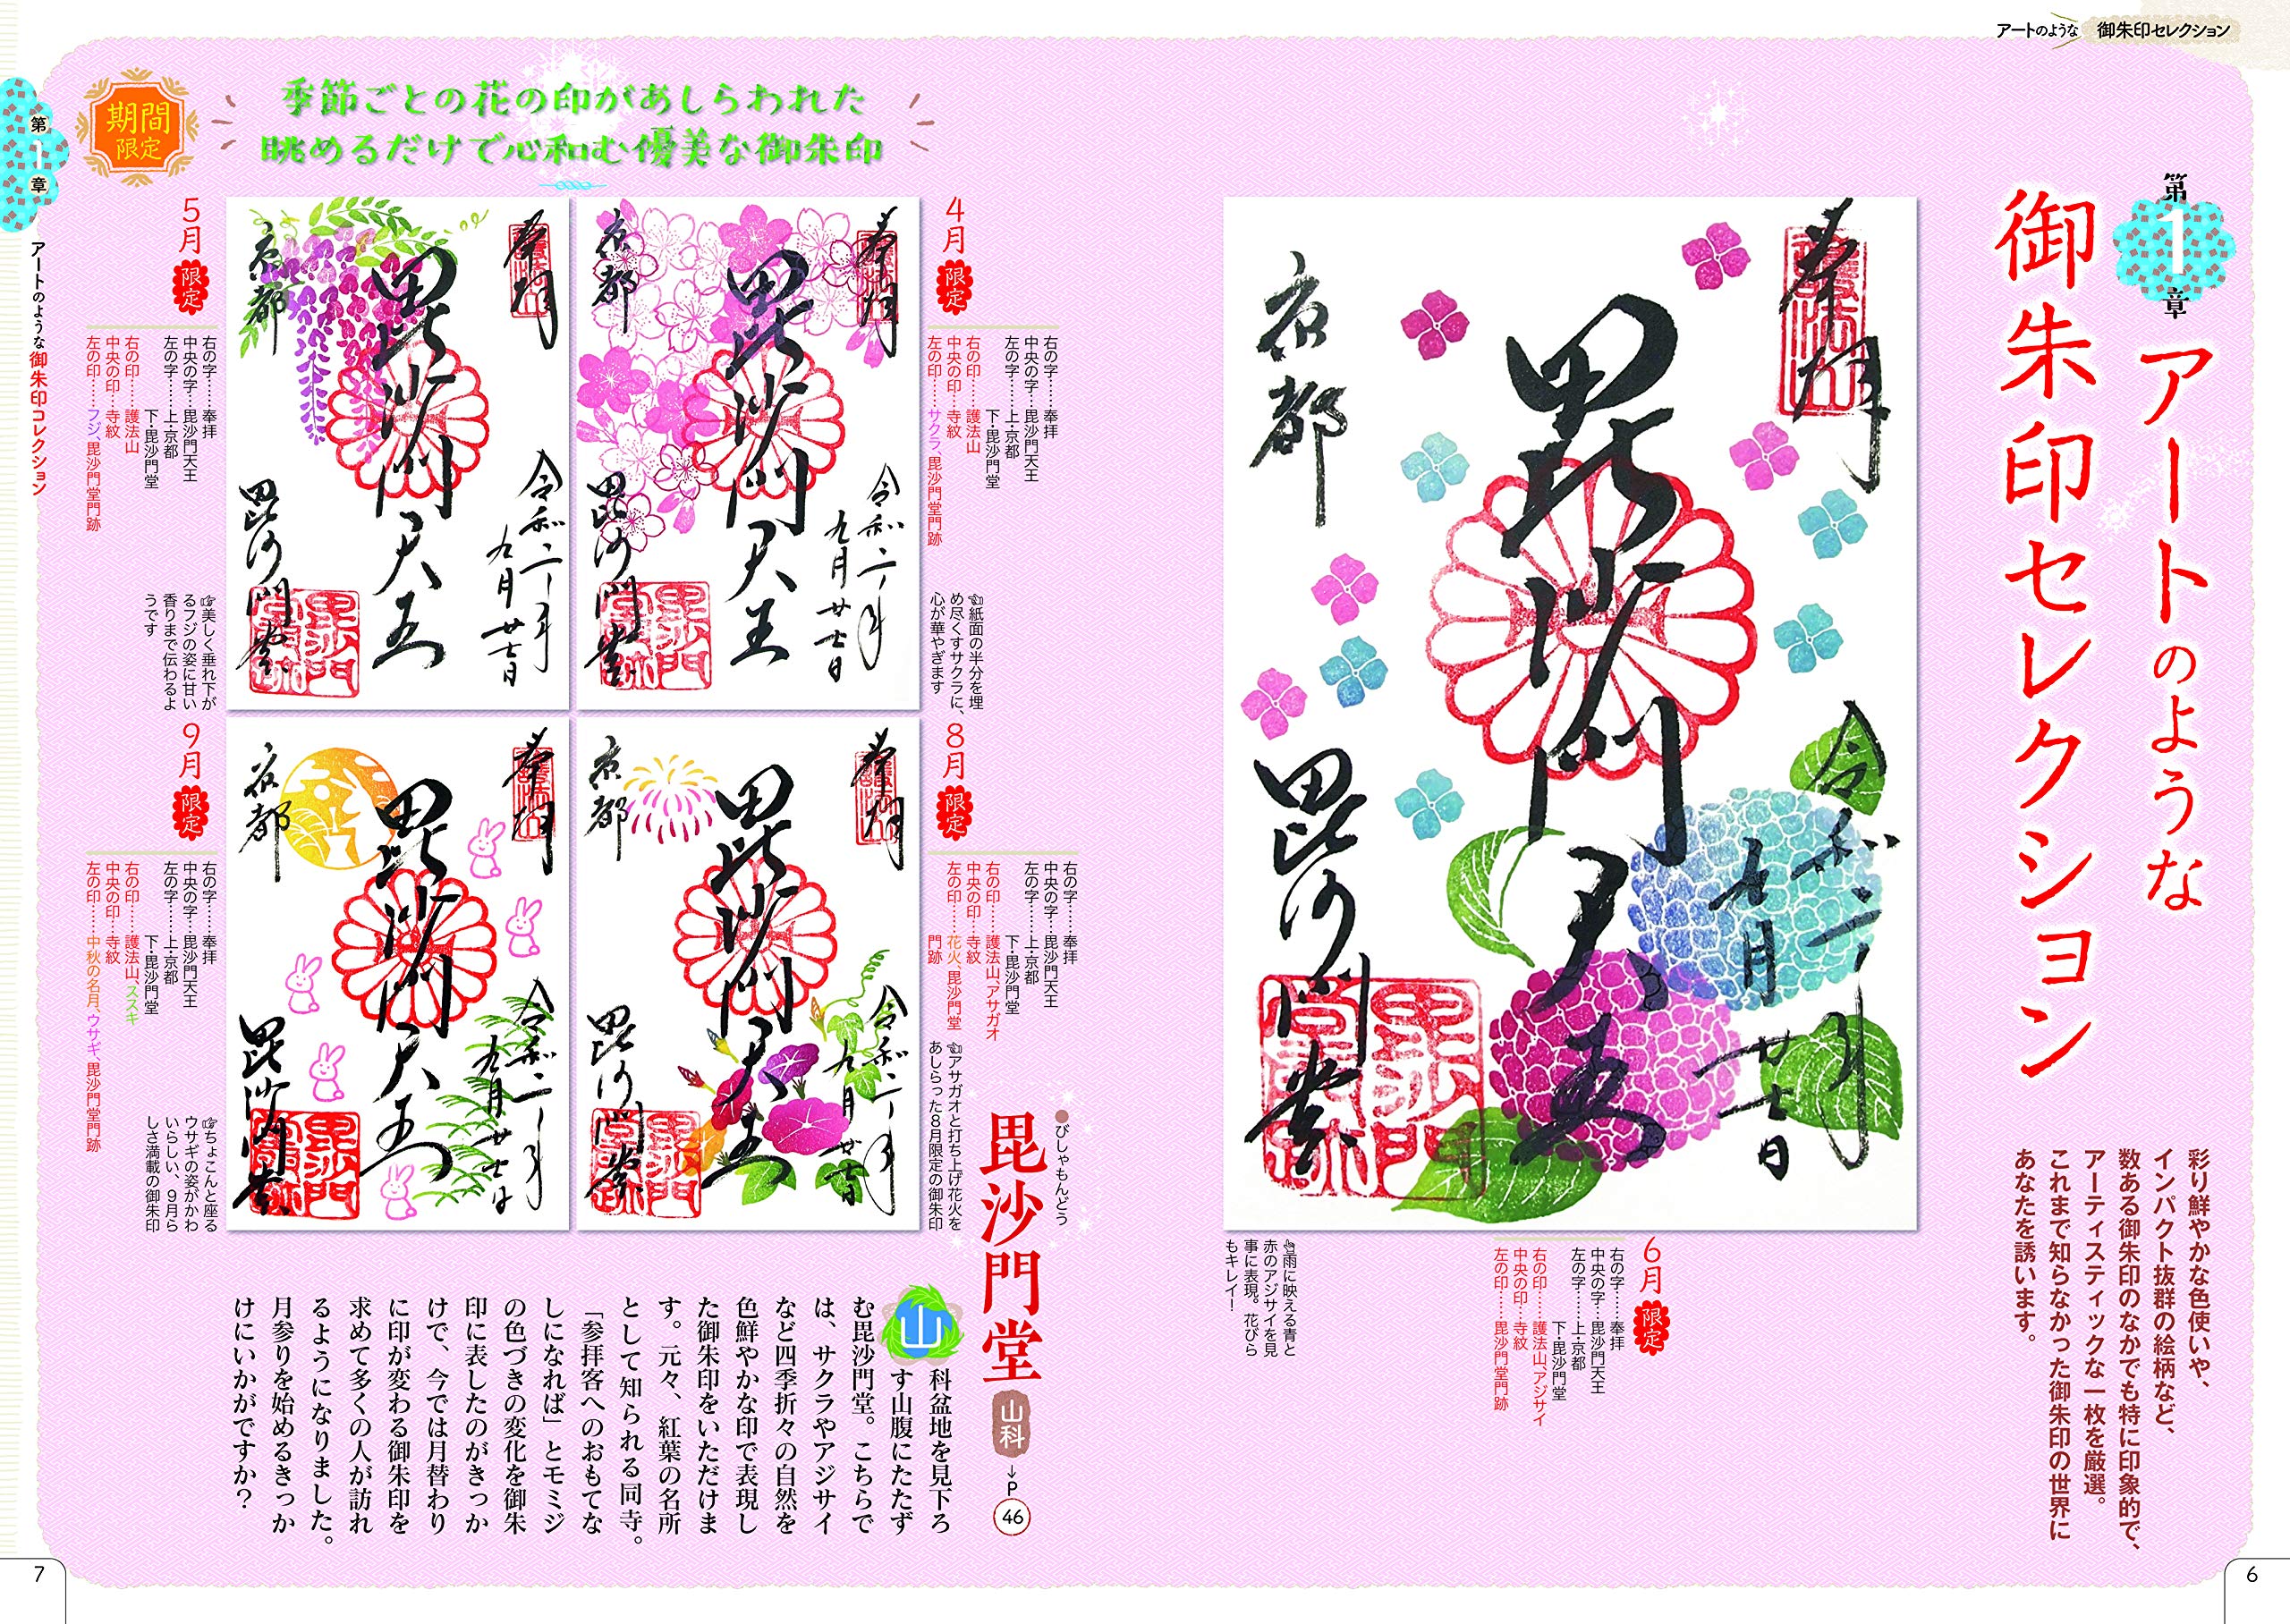 アートのような 御朱印セレクション
第1章 アートのような
御朱印セレクション
彩り鮮やかな色使いや、
インパクト抜群の絵柄など、
数ある御朱印のなかでも特に印象的で、
アーティスティックな一枚を厳選。
これまで知らなかった御朱印の世界に
あなたを誘います。
奉拝
毘沙門天王
令和二年
九月廿七日
京都
毘沙門堂
6月 限定
右の字……奉拝
中央の字…毘沙門天王
左の字……上・京都
下・毘沙門堂
右の印……護法山、アジサイ
中央の印…寺紋
左の印……毘沙門堂門跡
雨に映える青と
赤のアジサイを見
事に表現。花びら
もキレイ！
6
季節ごとの花の印があしらわれた
眺めるだけで心和む優美な御朱印
期間
限定
4月 限定
右の字……奉拝
中央の字…毘沙門天王
左の字……上・京都
下・毘沙門堂
右の印……護法山
中央の印…寺紋
左の印……サクラ、毘沙門堂門跡
紙面の半分を埋
め尽くすサクラに、
心が華やぎます
奉拝
毘沙門天王
令和二年
九月廿七日
京都
毘沙門堂
5月 限定
右の字……奉拝
中央の字…毘沙門天王
左の字……上・京都
下・毘沙門堂
右の印……護法山
中央の印…寺紋
左の印……フジ、毘沙門堂門跡
美しく垂れ下が
るフジの姿に甘い
香りまで伝わるよ
うです
奉拝
毘沙門天王
令和二年
九月廿七日
京都
毘沙門堂
8月 限定
右の字……奉拝
中央の字…毘沙門天王
左の字……上・京都
下・毘沙門堂
右の印……護法山、アサガオ
中央の印…寺紋
左の印……花火、毘沙門堂
門跡
アサガオと打ち上げ花火を
あしらった8月限定の御朱印
奉拝
毘沙門天王
令和二年
九月廿七日
京都
毘沙門堂
9月 限定
右の字……奉拝
中央の字…毘沙門天王
左の字……上・京都
下・毘沙門堂
右の印……護法山、ススキ
中央の印…寺紋
左の印……中秋の名月、ウサギ、毘沙門堂門跡
ちょこんと座る
ウサギの姿がかわ
いらしい、9月ら
しさ満載の御朱印
奉拝
毘沙門天王
令和二年
九月廿七日
京都
毘沙門堂
びしゃもんどう
毘沙門堂 山科 →P46
山科盆地を見下ろ
す山腹にたたず
む毘沙門堂。こちらで
は、サクラやアジサイ
など四季折々の自然を
色鮮やかな印で表現し
た御朱印をいただけま
す。元々、紅葉の名所
として知られる同寺。
「参拝客へのおもてな
しになれば」とモミジ
の色づきの変化を御朱
印に表したのがきっか
けで、今では月替わり
に印が変わる御朱印を
求めて多くの人が訪れ
るようになりました。
月参りを始めるきっか
けにいかがですか？
第1章 アートのような御朱印コレクション
7